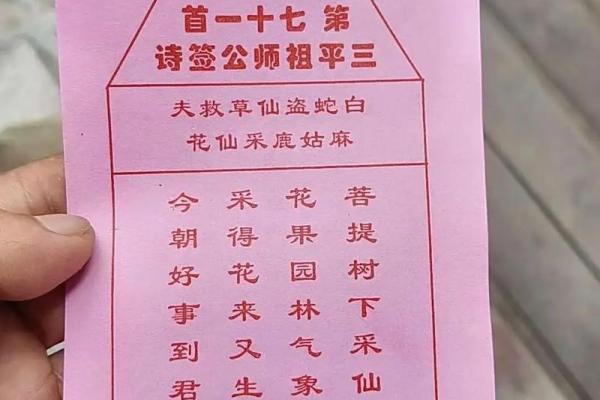 第 七十一首
三平祖师公签诗
白蛇盗仙草救夫
麻姑鹿采仙花
菩提树下采仙
花果园林气象
采得花来又生
今朝好事到君